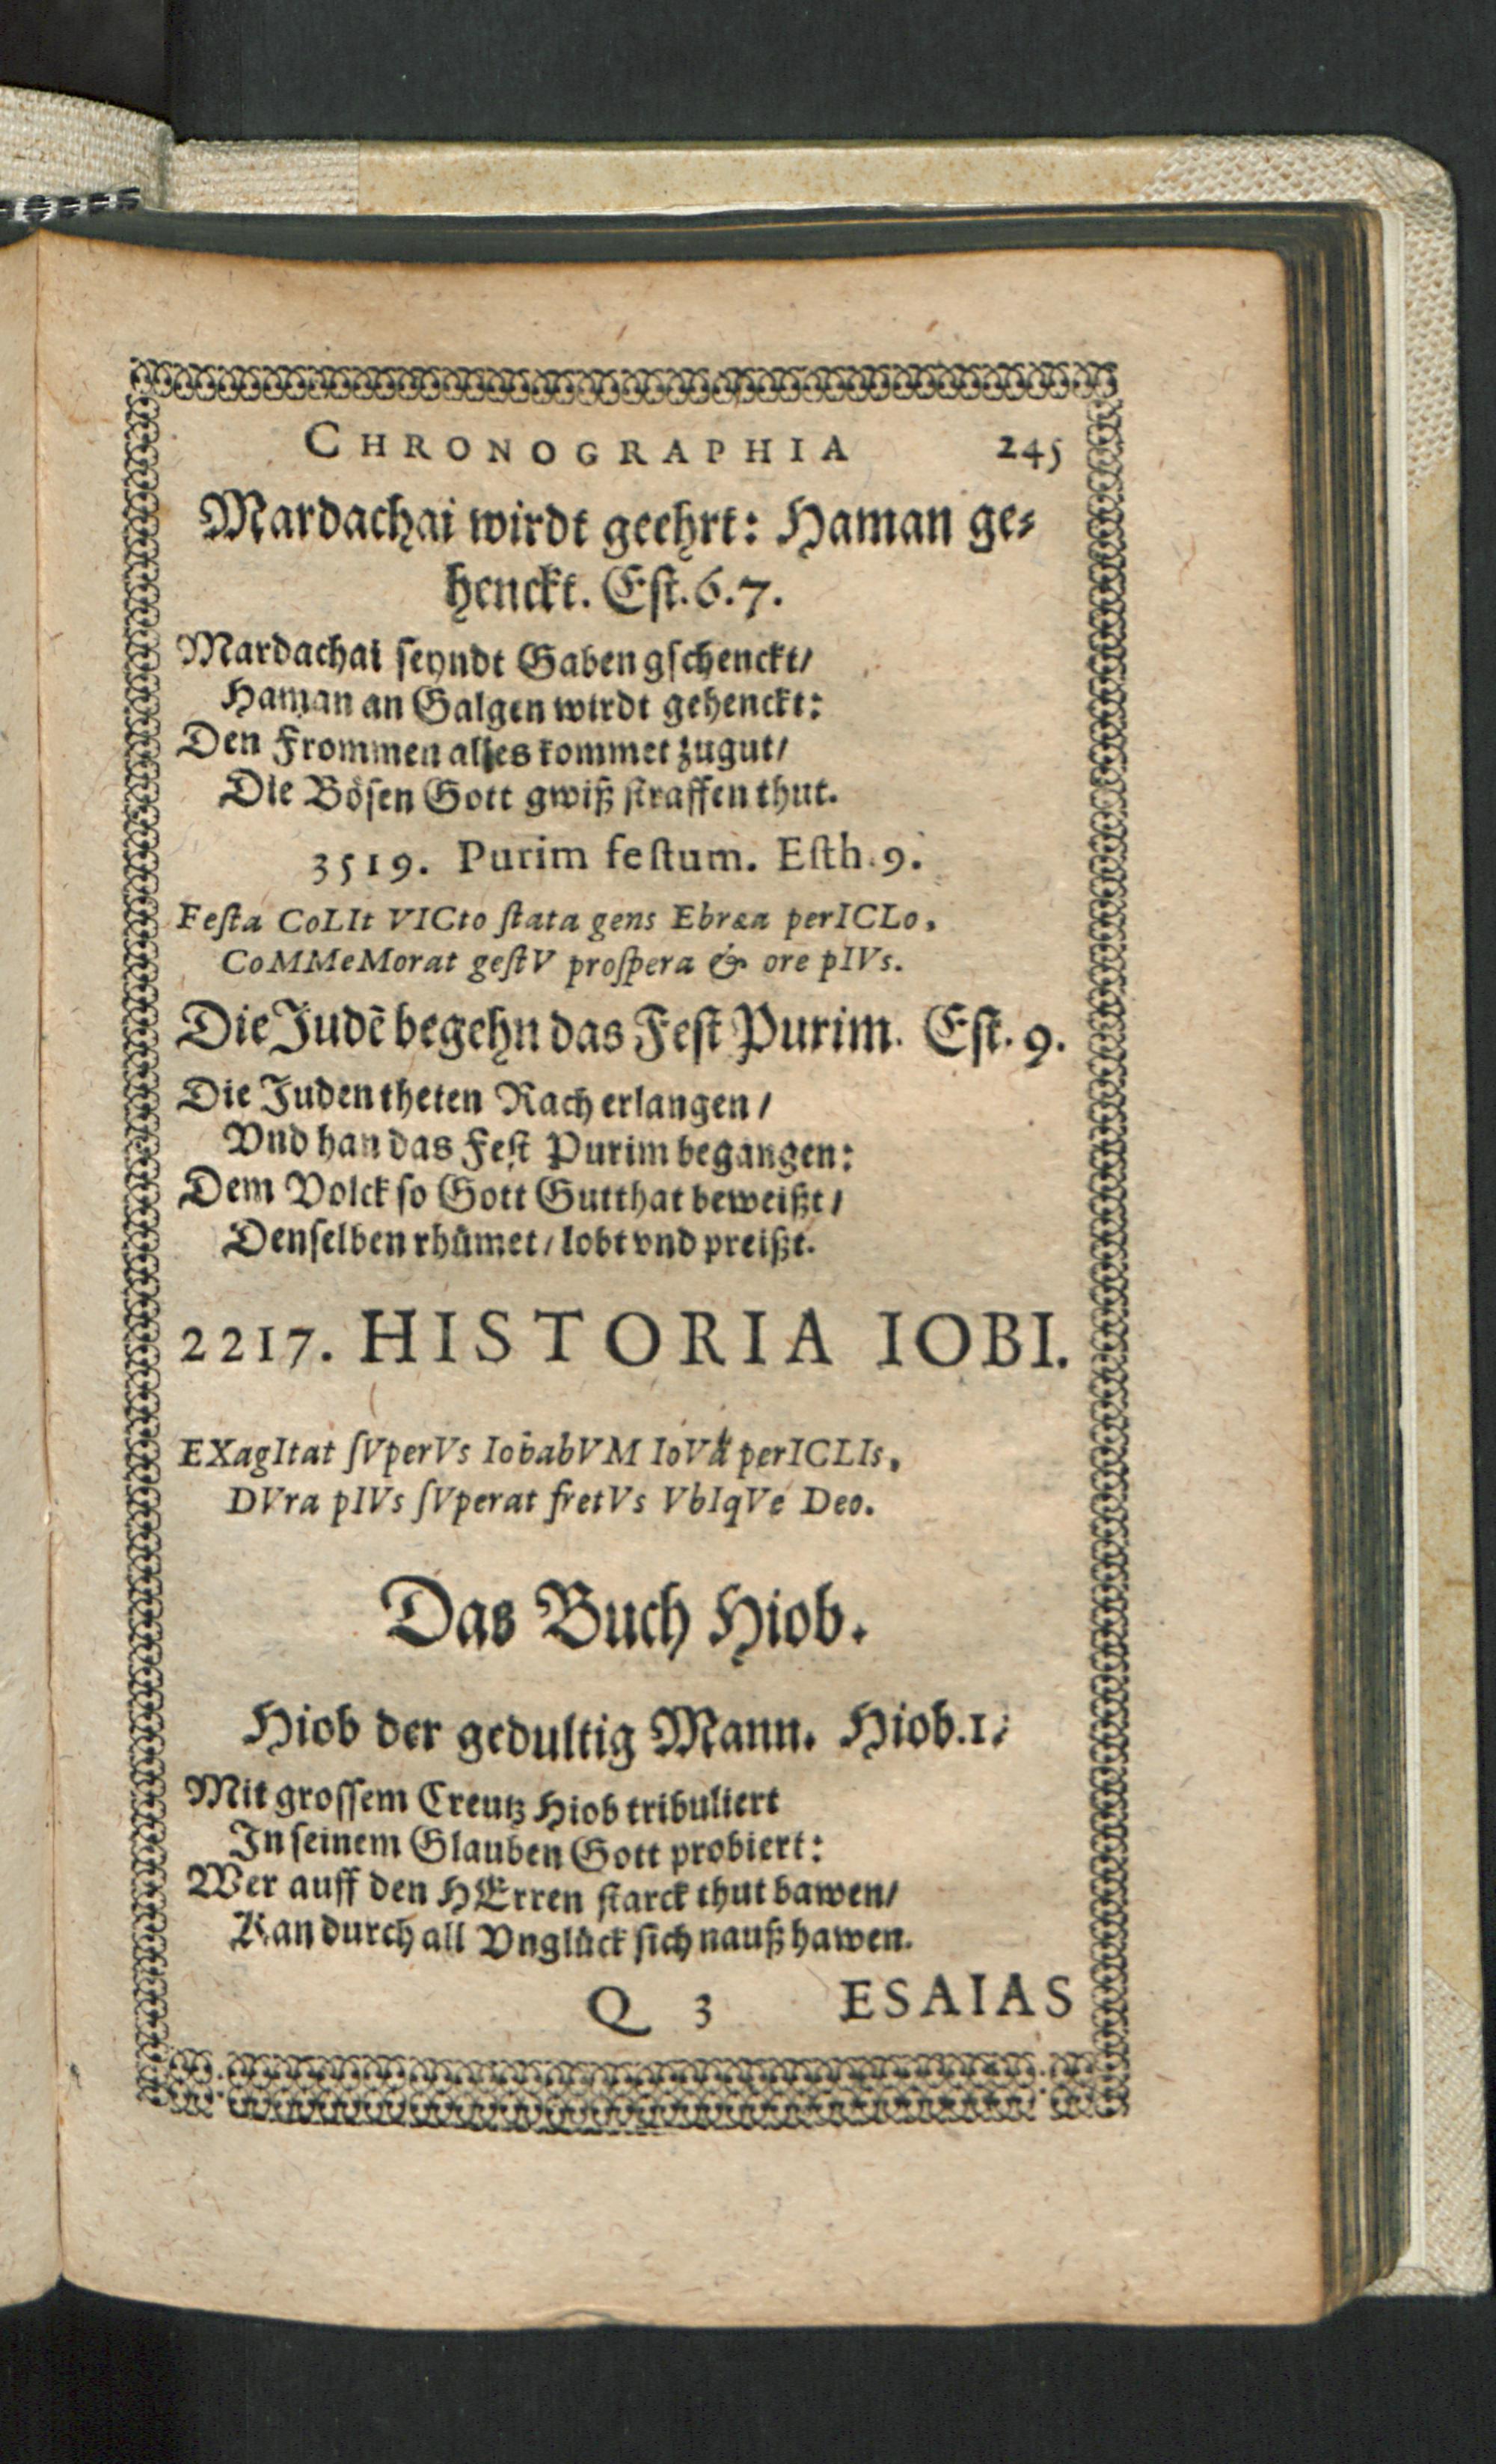 CHRONOGRAPHIA 245
Mardachai wirdt geehrt: Haman ge⸗
henckt. Eſt. 6. 7.
Mardachai ſeyndt Gaben gſchenckt/
Haman an Galgen wirdt gehenckt:
Den Frommen alles kommet zugut/
Die Böſen Gott gwiß ſtraffen thut.
3519. Purim feſtum. Eſth. 9.
Feſta CoLIt VICto ſtata gens Ebræa perICLo,
CoMMeMorat geſtV proſpera & ore pIVs.
Die Judē begehn das Feſt Purim. Eſt. 9.
Die Juden theten Rach erlangen/
Vnd han das Feſt Purim begangen:
Dem Volck ſo Gott Gutthat beweißt/
Denſelben rhümet/ lobt vnd preißt.
2217. HISTORIA IOBI.
EXagItat ſVperVs IobabVM IoVa perICLIs,
DVra pIVs ſVperat fretVs VbIqVe Deo.
Das Buch Hiob.
Hiob der gedultig Mann. Hiob. 1.
Mit groſſem Creutz Hiob tribuliert
In ſeinem Glauben Gott probiert:
Wer auff den HErren ſtarck thut bawen/
Kan durch all Vnglück ſich nauß hawen.
Q 3 ESAIAS